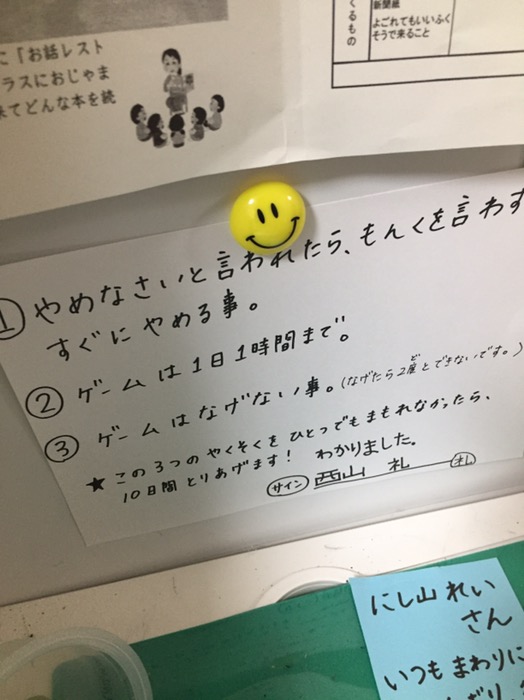 に「お話レスト
ラスにおじゃま
来てどんな本を続
くるもの
新聞紙
よごれてもいいふく
そうで来ること
① やめなさいと言われたら、もんくを言わず
すぐにやめる事。
② ゲームは1日1時間まで。
③ ゲームはなげない事。(なげたら2度とできないです。)
ど
★ この3つのやくそくをひとつでもまもれなかったら、
10日間とりあげます! わかりました。
サイン 西山 礼 礼
にし山れい
さん
いつもまわりに